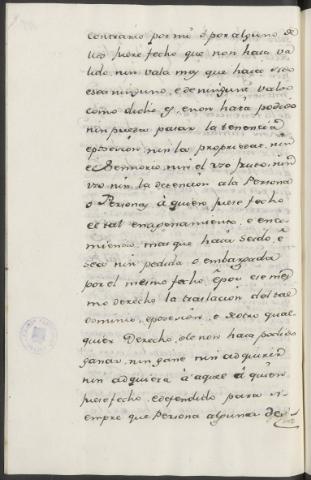 contrario por mi ó por alguno de
llos fuere fecho que non haia va
lido, nin vala mas que haia sido
é sea ninguno, é de ningund valor
como dicho es, é non haia podido
nin pueda pasar la tenencia
é posesion, nin la propriedad, nin
el Sennorio, nin el uso fruto, nin
uso nin la detencion a la Persona
o Personas á quien fuere fecho
el tal enagenamiento, o enco
mienda, mas que haia seido, é
sea nin pedida o embargada
por el mesmo fecho é por ese mes
mo derecho la traslacion del tal
dominio, é posesion, é de otro qual
quier Derecho, é le non haia podido
ganar, nin gane nin adquirido
nin adquiera á aquel á quien
fuere fecho, é defendido para si
empre que Persona alguna de